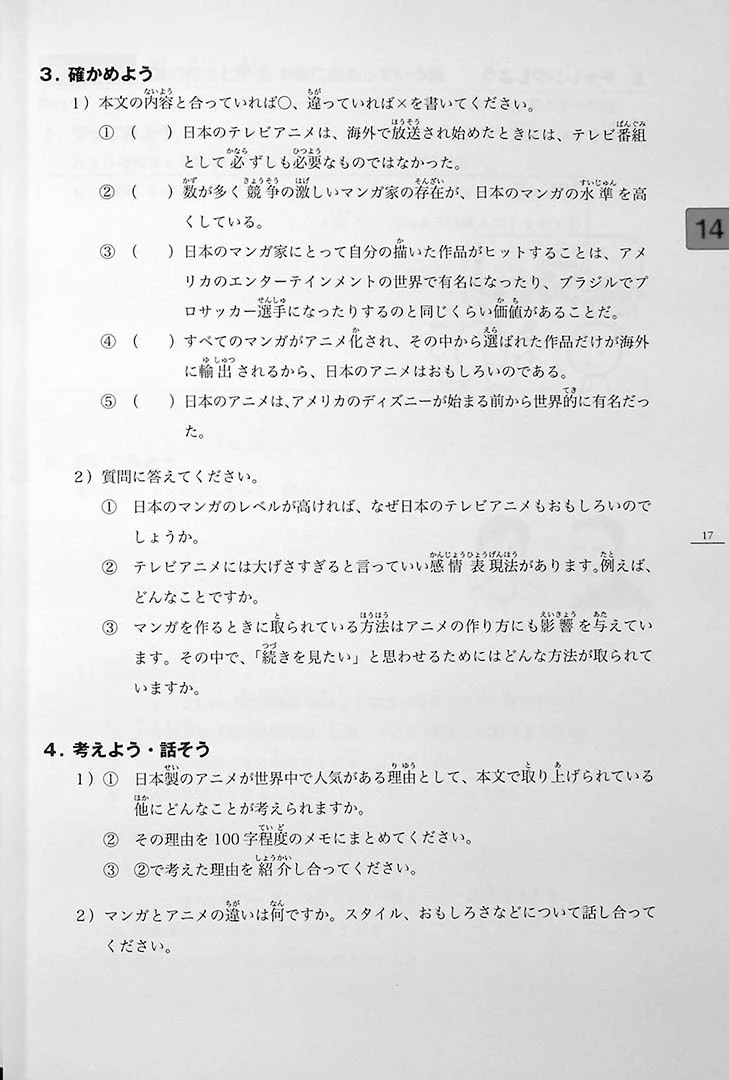 3. 確かめよう
1）本文の内容と合っていれば〇、違っていれば×を書いてください。
①（　　）日本のテレビアニメは、海外で放送され始めたときには、テレビ番組
として必ずしも必要なものではなかった。
②（　　）数が多く競争の激しいマンガ家の存在が、日本のマンガの水準を高
くしている。
③（　　）日本のマンガ家にとって自分の描いた作品がヒットすることは、アメ
リカのエンターテインメントの世界で有名になったり、ブラジルでプ
ロサッカー選手になったりするのと同じくらい価値があることだ。
④（　　）すべてのマンガがアニメ化され、その中から選ばれた作品だけが海外
に輸出されるから、日本のアニメはおもしろいのである。
⑤（　　）日本のアニメは、アメリカのディズニーが始まる前から世界的に有名だっ
た。
14
2）質問に答えてください。
①　日本のマンガのレベルが高ければ、なぜ日本のテレビアニメもおもしろいので
しょうか。
②　テレビアニメには大げさすぎると言っていい感情表現法があります。例えば、
どんなことですか。
③　マンガを作るときに取られている方法はアニメの作り方にも影響を与えてい
ます。その中で、「続きを見たい」と思わせるためにはどんな方法が取られて
いますか。
17
4. 考えよう・話そう
1）①　日本製のアニメが世界中で人気がある理由として、本文で取り上げられている
他にどんなことが考えられますか。
②　その理由を100字程度のメモにまとめてください。
③　②で考えた理由を紹介し合ってください。
2）マンガとアニメの違いは何ですか。スタイル、おもしろさなどについて話し合って
ください。